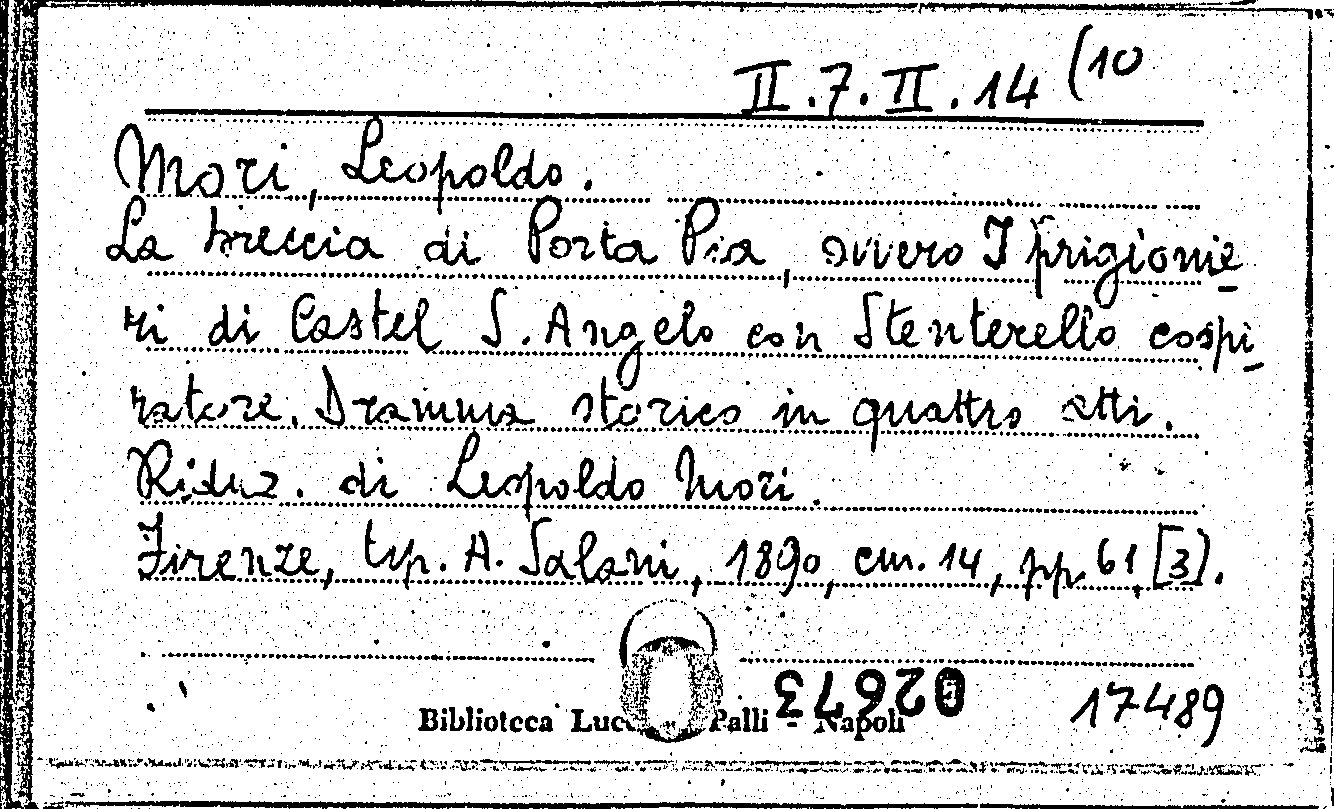 II.7.II.14 (10
Mori, Leopoldo.
La breccia di Porta Pia, ovvero I prigionie
ri di Castel S. Angelo con Stenterello cospi
ratore. Dramma storico in quattro atti.
Riduz. di Leopoldo Mori.
Firenze, typ. A. Salani, 1890, cm. 14, pp. 61, [3].
02673
17489
Biblioteca Palli - Napoli